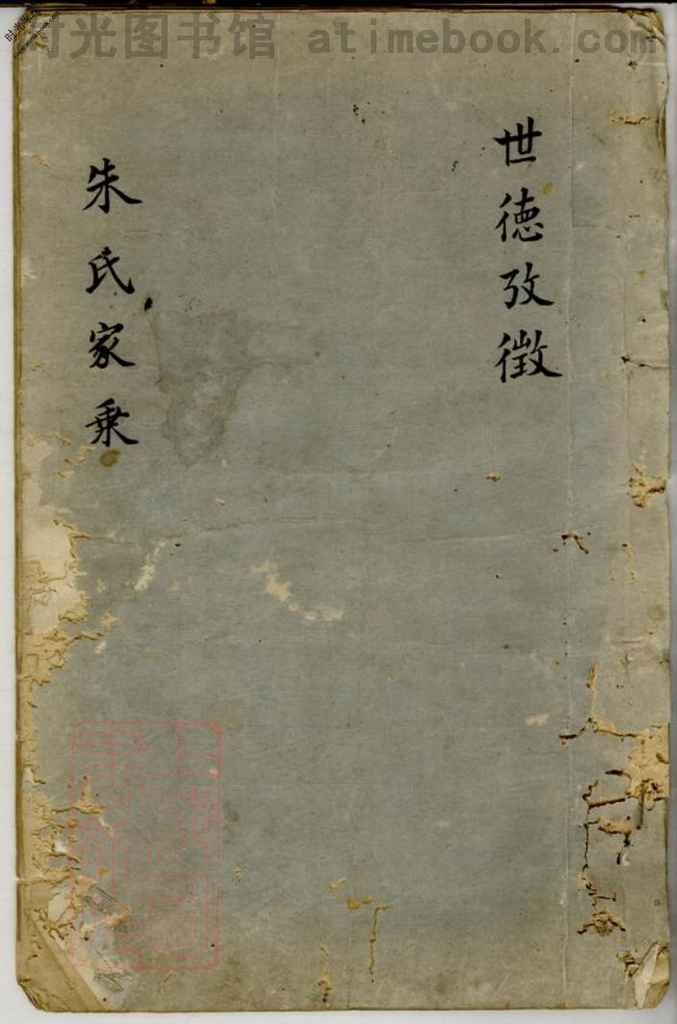 时光图书馆 atimebook.com
世徳攷徴
朱氏家乗